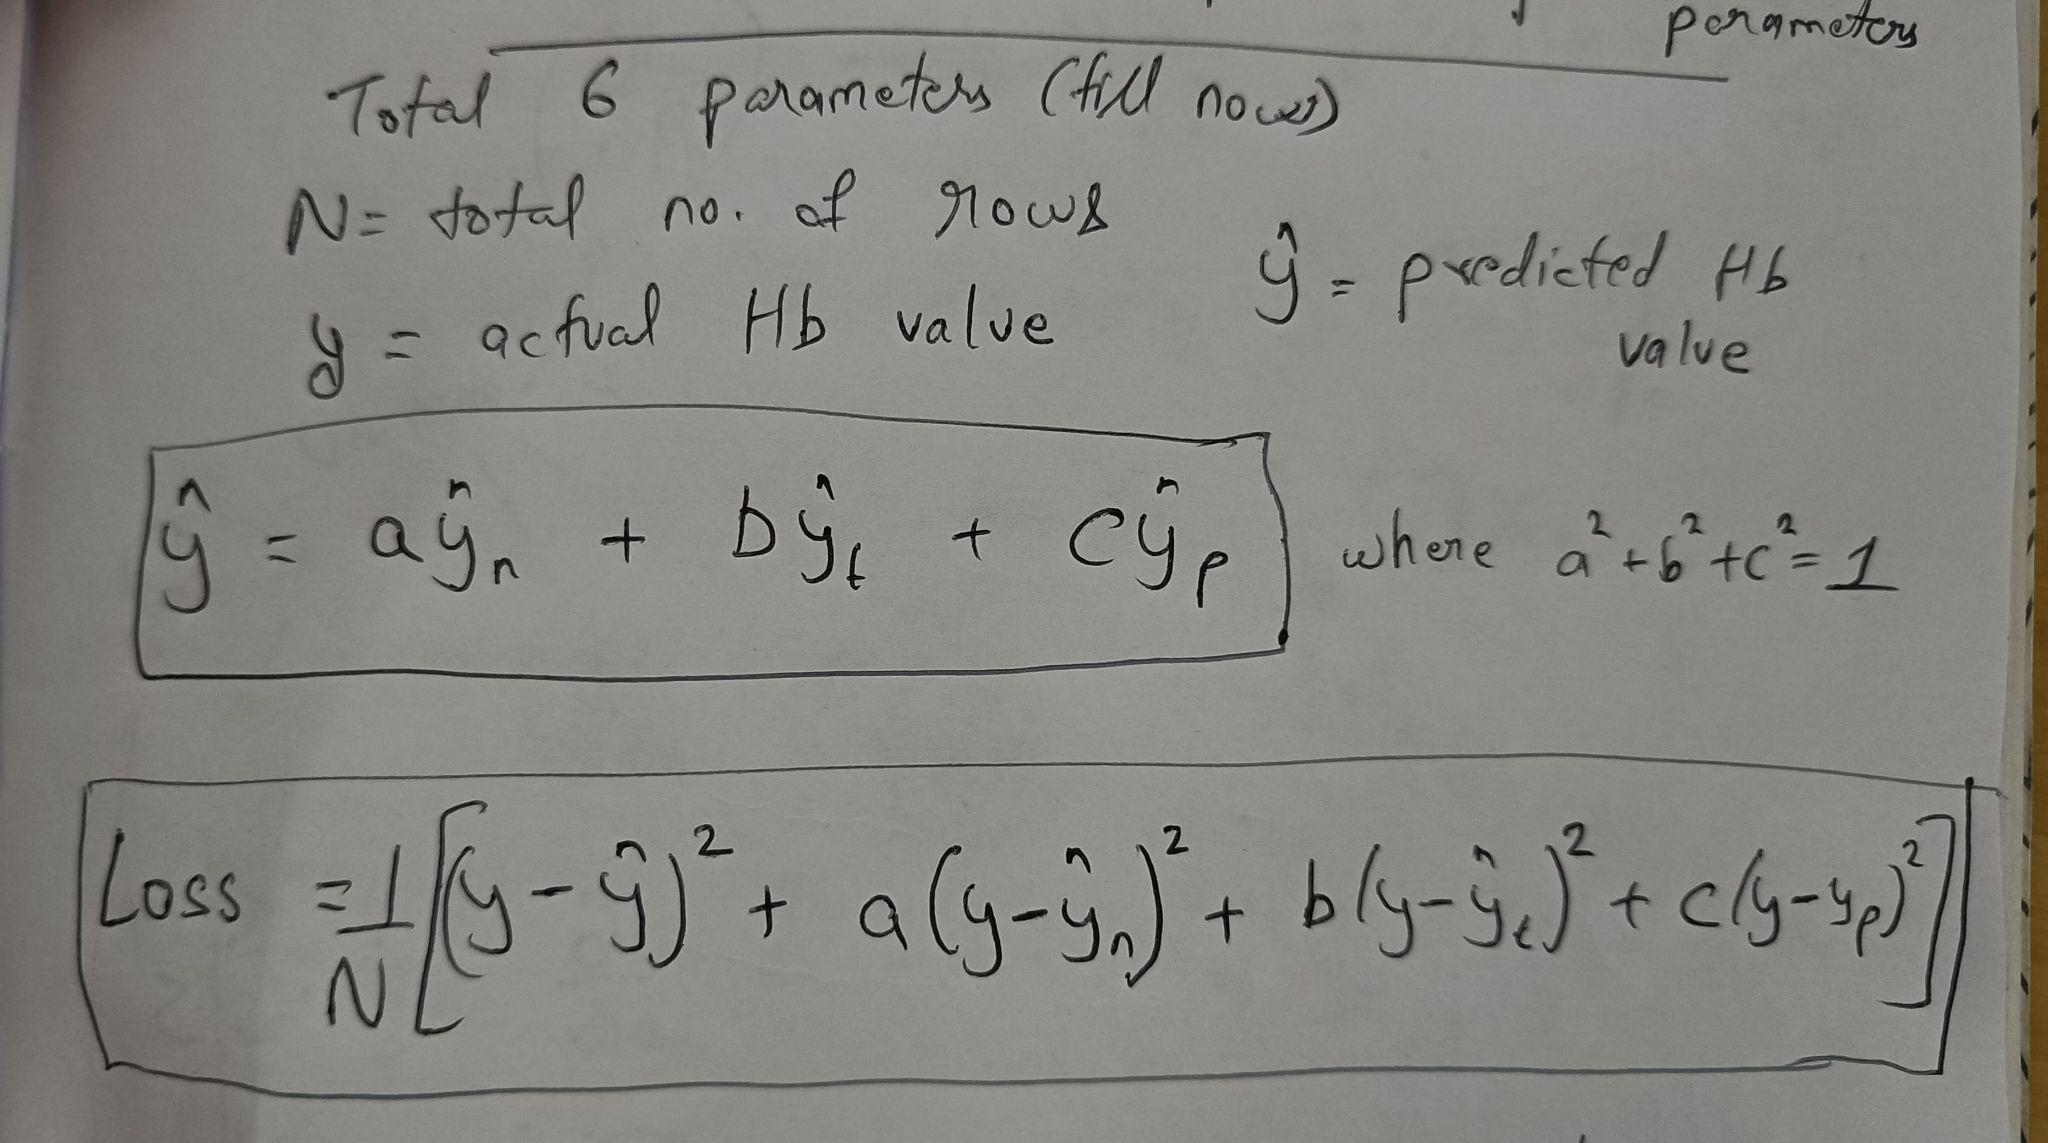 parameters
Total 6 parameters (till now)
N = total no. of rows
ŷ = predicted Hb value
y = actual Hb value
ŷ = aŷₙ + bŷₜ + cŷₚ where a² + b² + c² = 1
Loss = 1/N [(y - ŷ)² + a(y - ŷₙ)² + b(y - ŷₜ)² + c(y - yₚ)²]